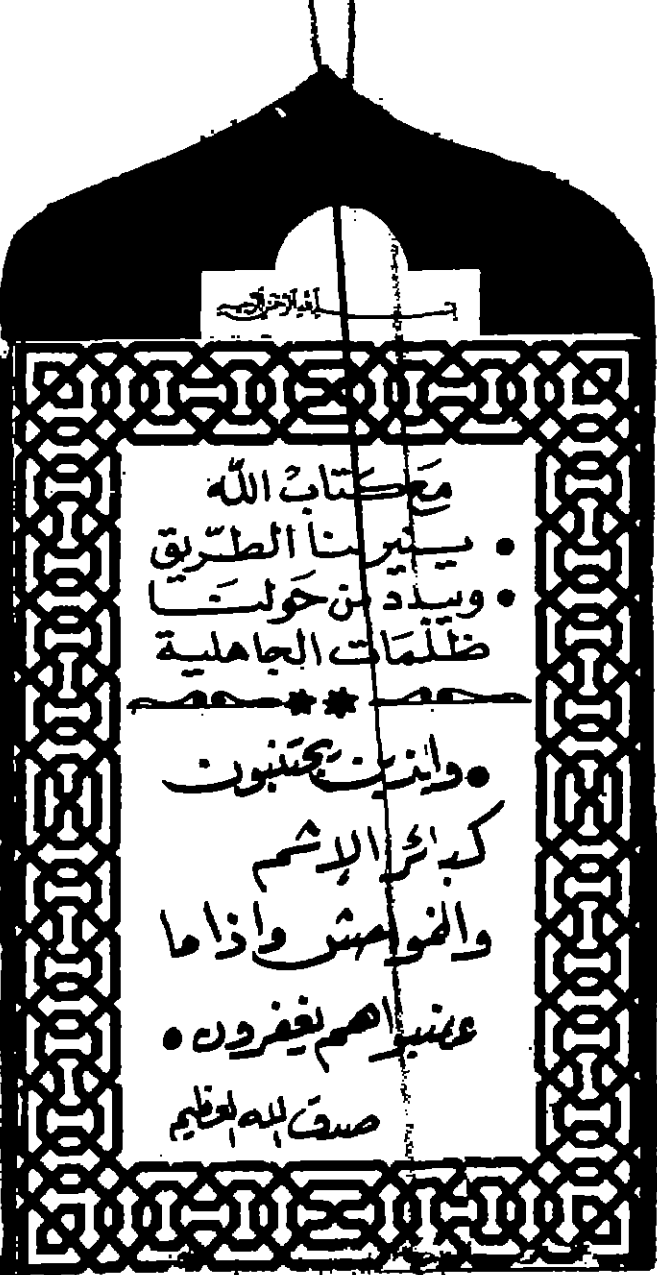 بسم الله الرحمن الرحيم
مَع كتابْ اللّه
• يـنير لنا الطّريق
• ويبدد من حَولنَا
ظلُمَات الجاهلية
• والذين يجتنبون
كبائر الإثم
والفواحش واذا ما
غضبوا هم يغفرون •
صدق الله العظيم